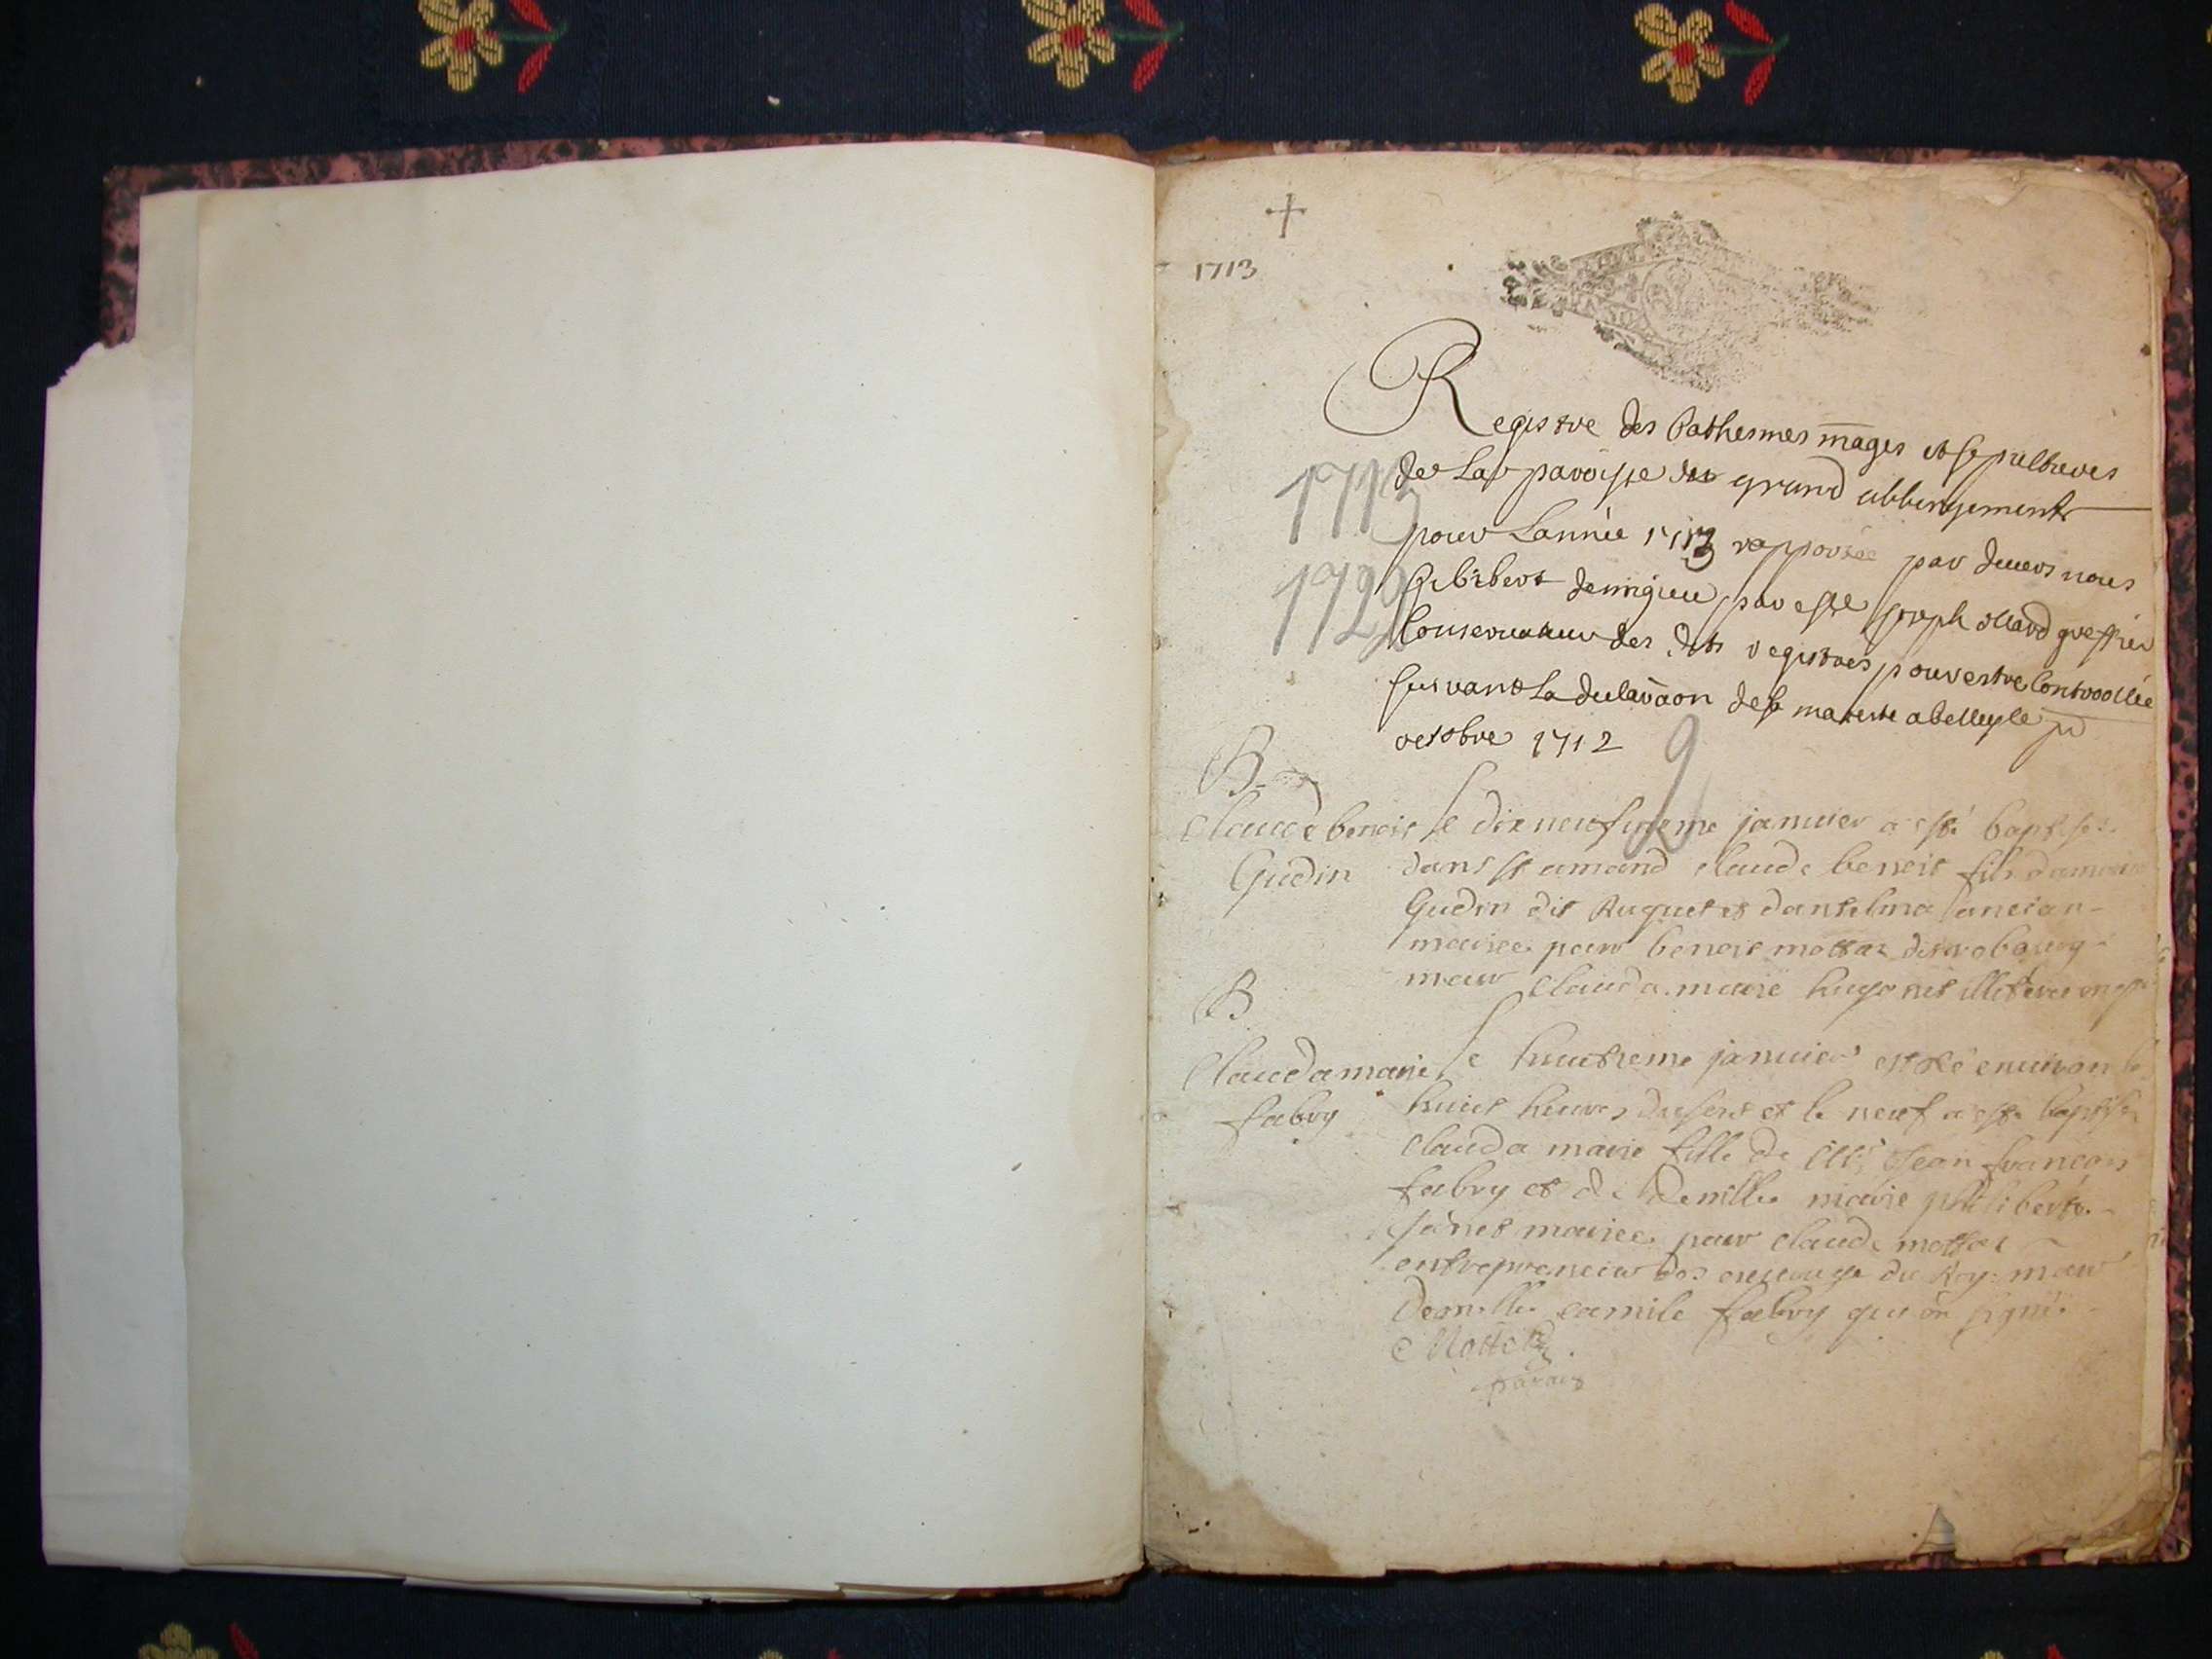 1713
Registre des Bathesmes mages et sepultures
de La paroisse du grand abbergement
1713
pour Lannée 1713 rapportée par devers nous
1729
par Joseph greffier
Conservateur des dits registres pour estre Controollée
suivant La declaraon de sa maieste a belley le
octobre 1712
9
B
Claude benoit Le dixneufvieme janvier a esté baptisé
Gudin dans st amand claude benoit fils
Gudin dit Huguet et dantelma
mariee parr benoit mottaz
marr Clauda marie illiteres
B
Claudamarie Le huictieme janvier est né environ
fabry huict heures du soir et le neuf a esté baptisé
Clauda marie fille de Jean françois
fabry et de Demille marie philiberte
Janet mariee parr claude mottaz
entrepreneur des ouvrage du Roy marr
Demlle camile fabry qui on signé
Mottaz
parain